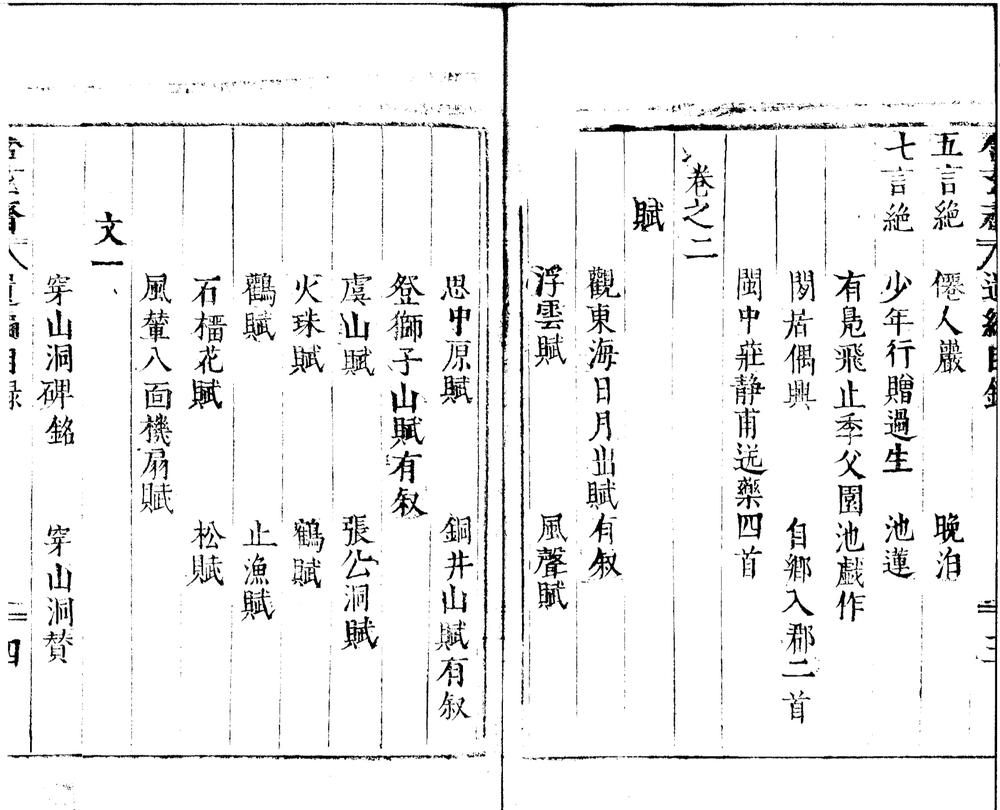 五言絶　僊人巖　晚泊
七言絶　少年行贈過生　池蓮
有鳧飛止季父園池戲作
閒居偶興　自鄉入郡二首
閩中莊靜甫送藥四首
卷之二
賦
觀東海日月出賦有叙
浮雲賦　風聲賦
思中原賦　銅井山賦有叙
登獅子山賦有叙
虞山賦　張公洞賦
火珠賦　鶴賦
鸛賦　止漁賦
石榴花賦　松賦
風輦八面機扇賦
文一
穿山洞碑銘　穿山洞贊
四